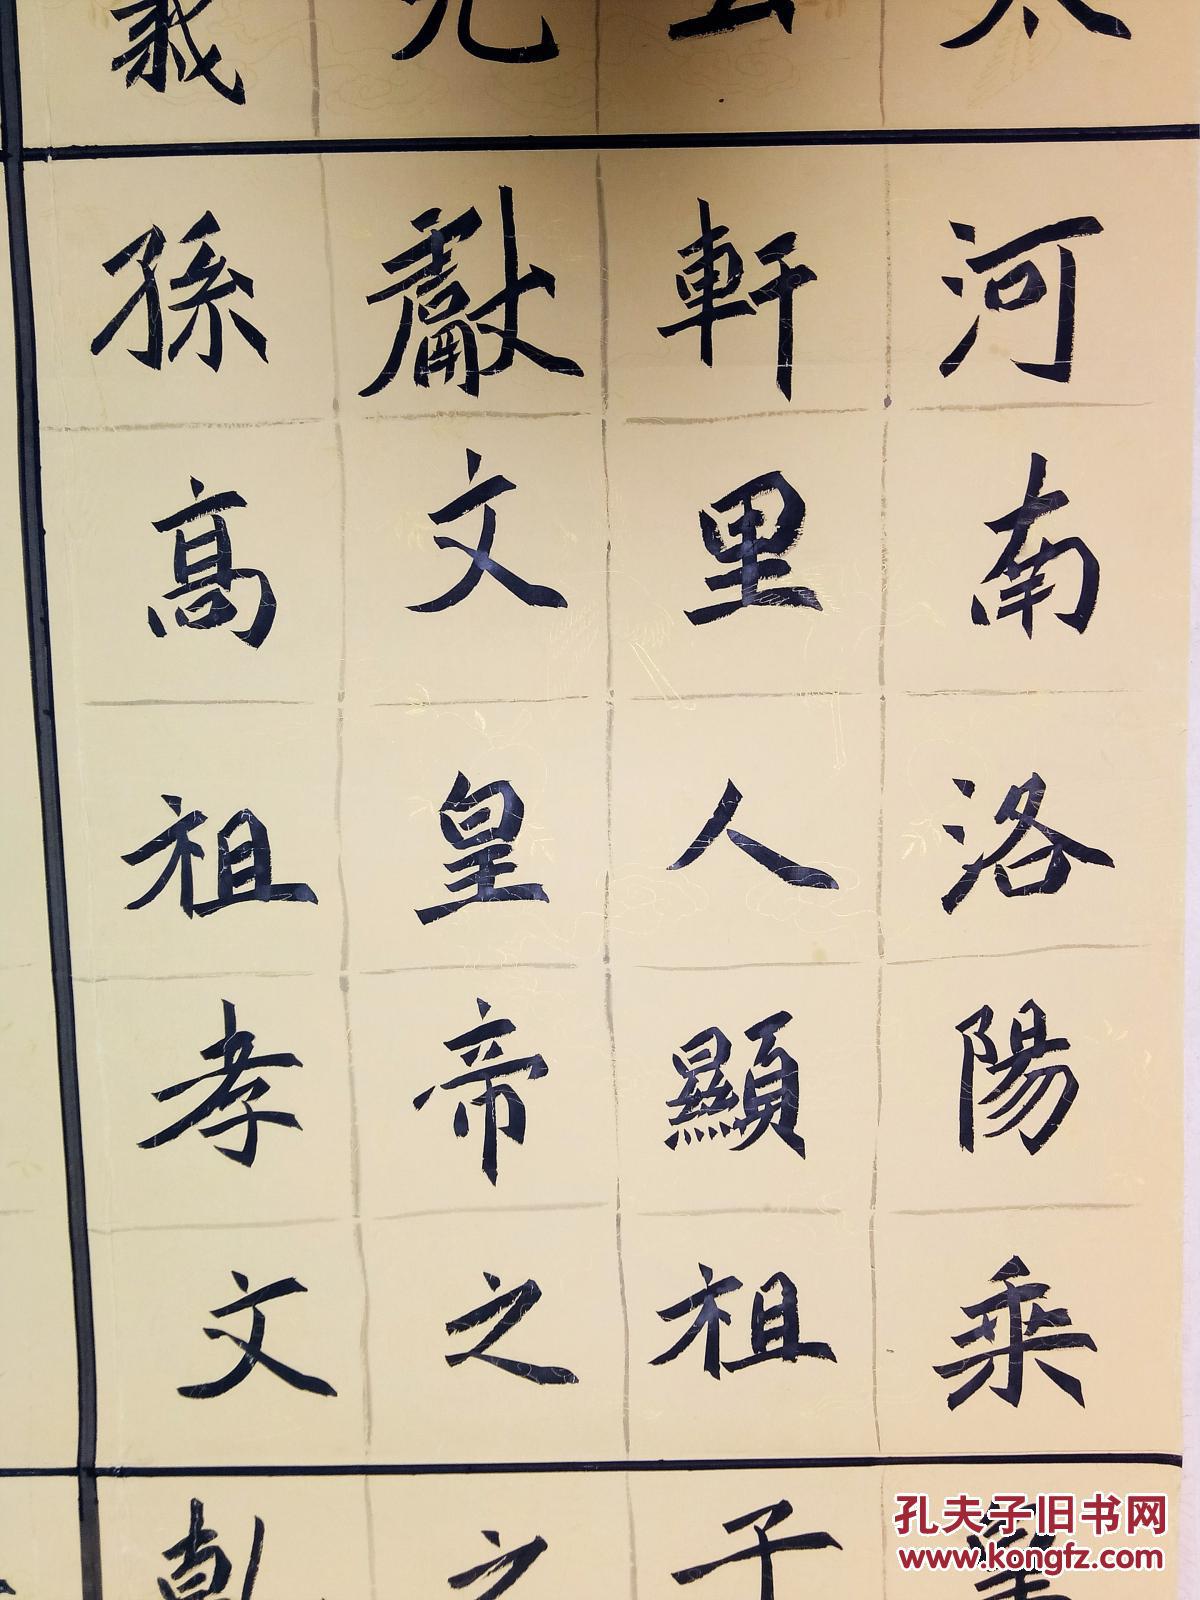 河南洛陽乘
軒里人顯祖
獻文皇帝之
孫高祖孝文
子
之
孔夫子旧书网
www.kongfz.com